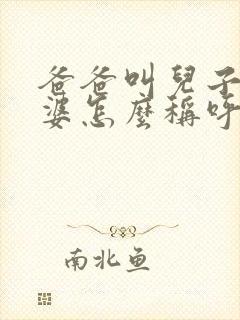 爸爸叫兒子
婆怎麼稱呼
南北鱼